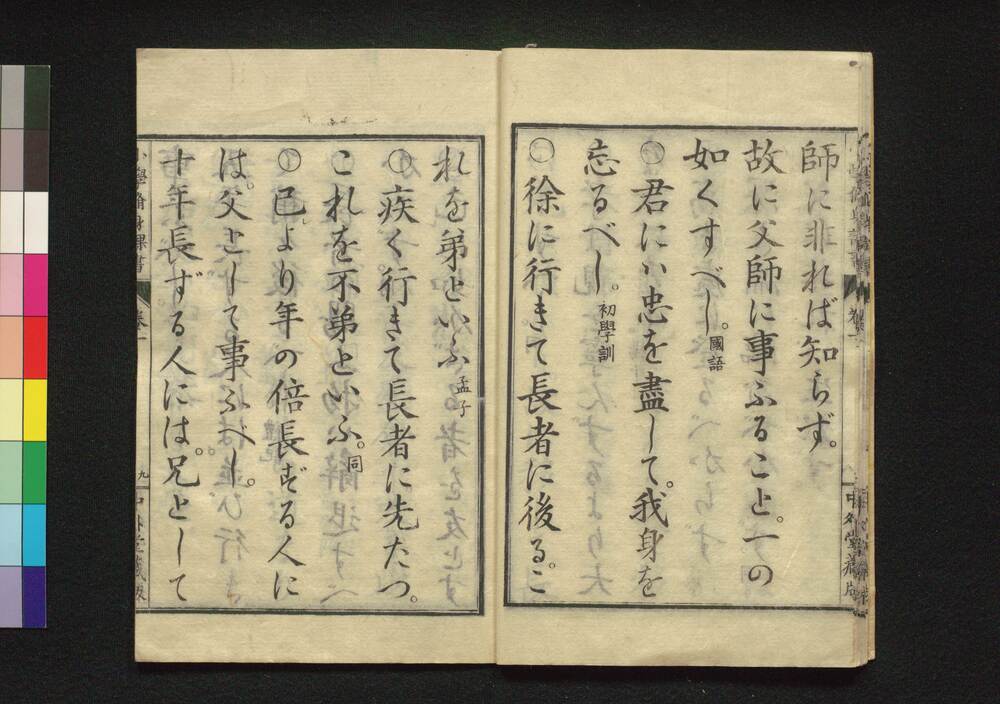 師に非れば知らず。
故に父師に事ふること。一の
如くすべし。國語
○君にハ忠を盡して。我身を
忘るべし。初學訓
○徐に行きて長者に後る。こ
中外堂藏版
れを弟といふ孟子
○疾く行きて長者に先たつ。
これを不弟といふ。同
○己より年の倍長ずる人に
は。父として事ふべし。
十年長ずる人には。兄として
小學脩身課書
卷一
九